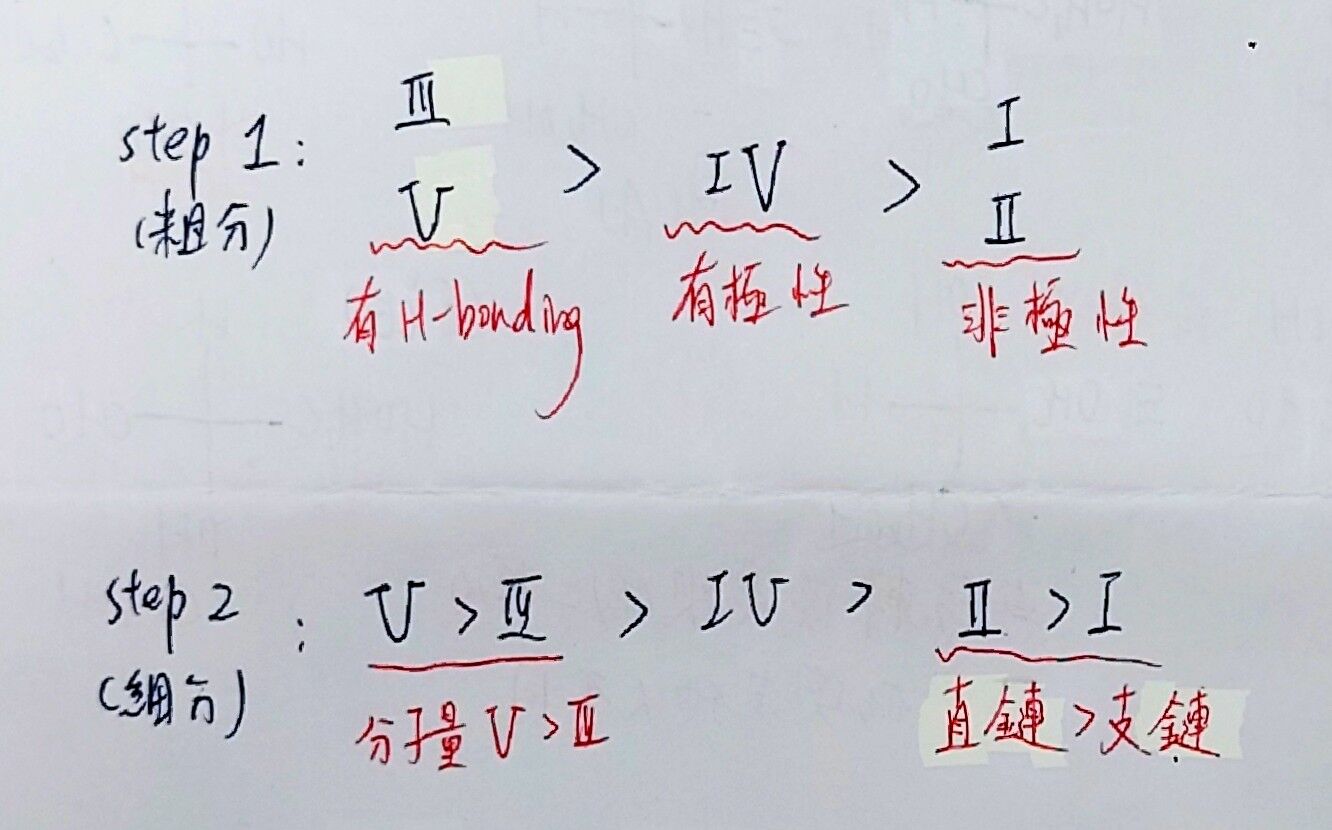 step 1: Ⅲ Ⅴ > ⅠⅤ > Ⅰ Ⅱ
(粗分)
有H-bonding 有極性 非極性
step 2: Ⅴ > Ⅲ > ⅠⅤ > Ⅱ > Ⅰ
(細分)
分子量 Ⅴ > Ⅲ 直鏈 > 支鏈